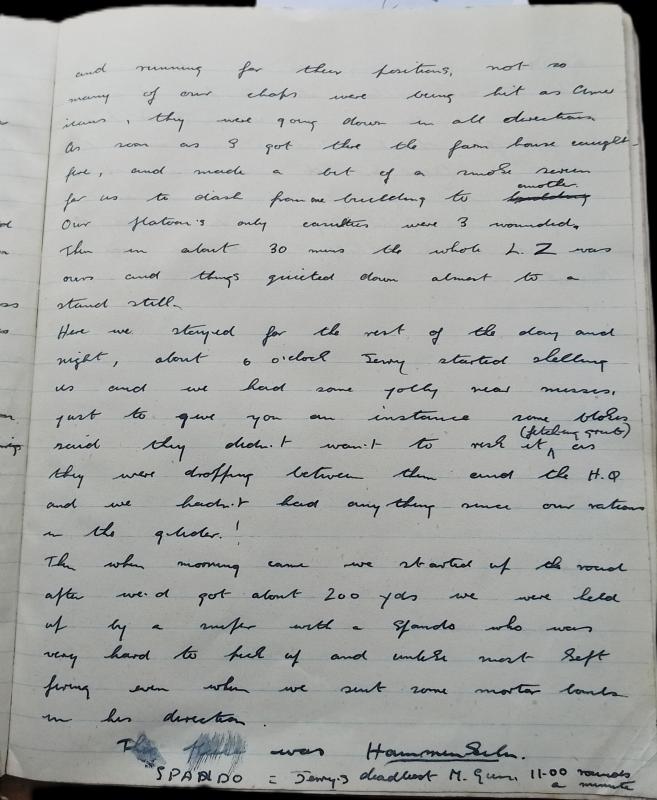 and running for their positions, not so
many of our chaps were being hit as Amer
icans, they were going down in all directions
As soon as I got there the farm house caught
fire, and made a bit of a smoke screen
for us to dash from one building to another
Our platoon's only casulties were 3 wounded.
Then in about 30 mins the whole L.Z was
ours and things quieted down almost to a
stand still.
Here we stayed for the rest of the day and
night, about 6 o'clock Jerry started shelling
us and we had some jolly near misses,
just to give you an instance some blokes
said they didn't want to risk it (fetching grub) as
they were dropping between them and the H.Q
and we hadn't had anything since our rations
in the glider!
Then when morning came we started up the road
after we'd got about 200 yds we were held
up by a sniper with a Spando who was
very hard to pick up and unlike most kept
firing even when we sent some mortar bombs
in his direction.
was Hamminkeln.
SPANDO = Jerry's deadliest M. Gun. 11-00 rounds
a minute